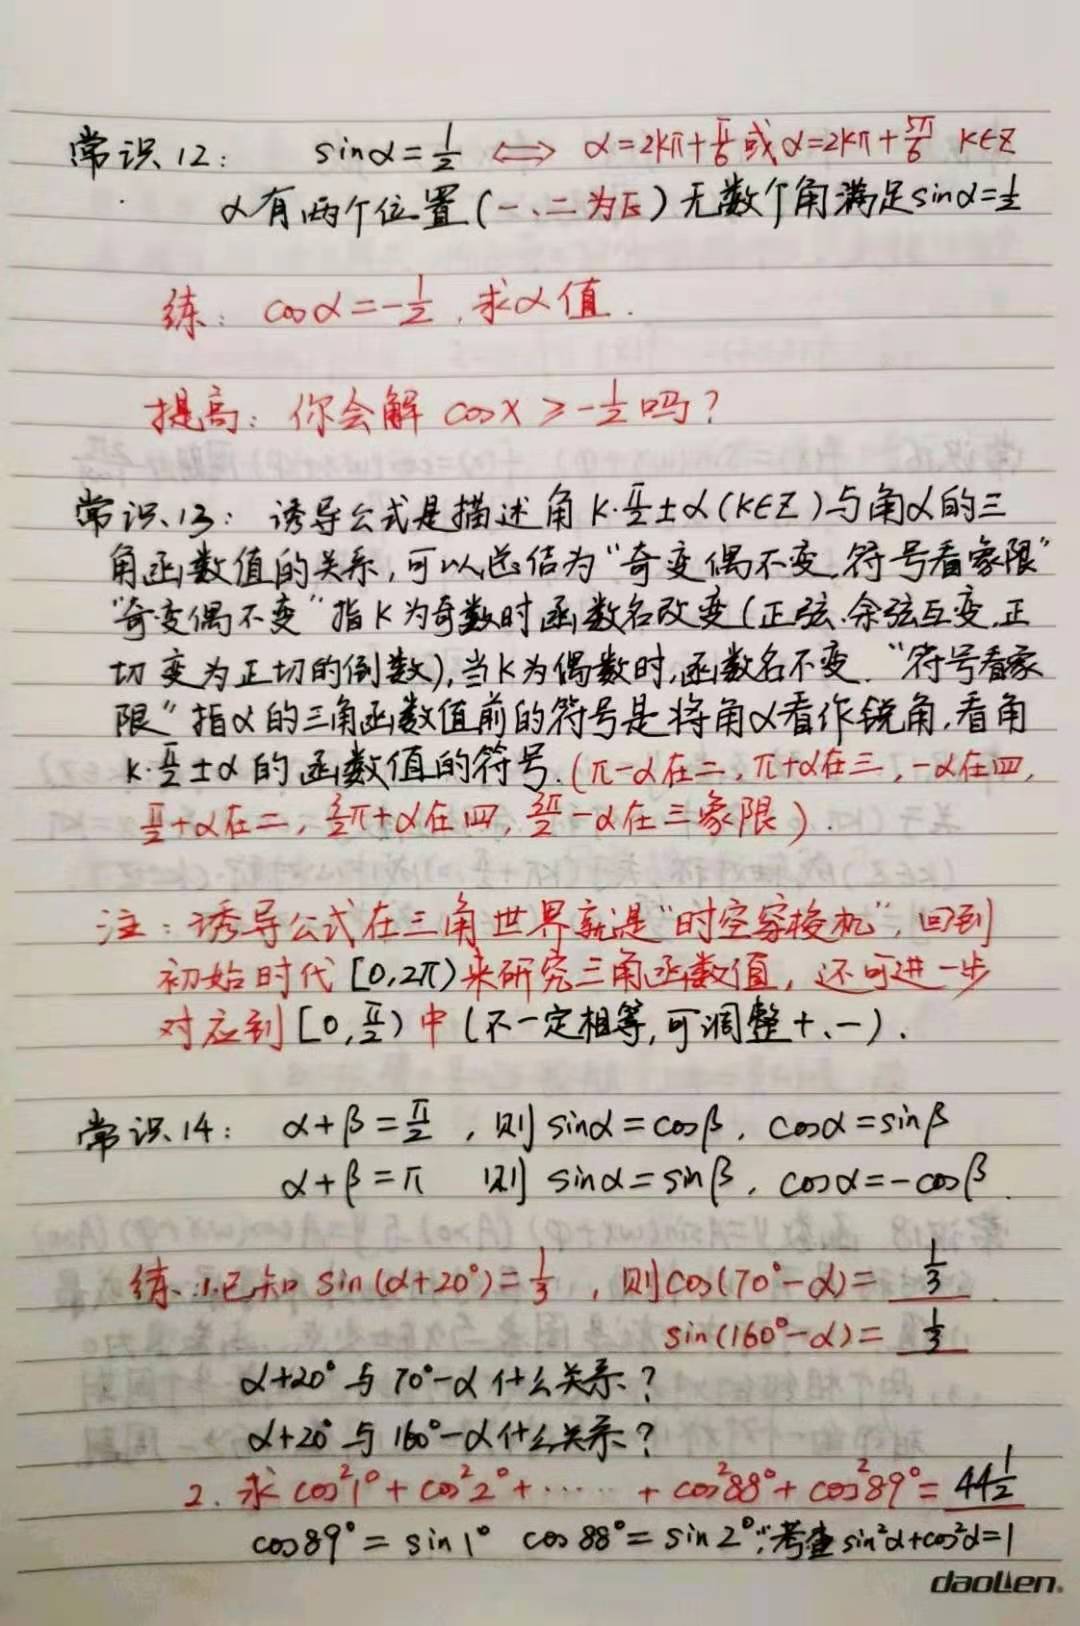 常识12: sinα=1/2 ⟺ α=2kπ+π/6 或 α=2kπ+5π/6 k∈Z
α有两个位置(一、二为正)无数个角满足sinα=1/2
练: cosα=-1/2,求α值.
提高: 你会解 cosx≥-1/2吗?
常识13: 诱导公式是描述角 k·π/2±α(k∈Z)与角α的三
角函数值的关系,可以总结为“奇变偶不变,符号看象限”
“奇变偶不变”指k为奇数时函数名改变(正弦.余弦互变,正
切变为正切的倒数),当k为偶数时,函数名不变.“符号看象
限”指α的三角函数值前的符号是将角α看作锐角,看角
k·π/2±α的函数值的符号.(π-α在二,π+α在三,-α在四,
π/2+α在二,3/2π+α在四,3π/2-α在三象限).
注:诱导公式在三角世界就是“时空穿梭机”,回到
初始时代[0,2π)来研究三角函数值,还可进一步
对应到[0,π/2)中(不一定相等,可调整+、-).
常识14: α+β=π/2,则sinα=cosβ,cosα=sinβ
α+β=π 则 sinα=sinβ,cosα=-cosβ.
练:1.已知sin(α+20°)=1/3,则cos(70°-α)=1/3.
sin(160°-α)=1/3
α+20°与70°-α什么关系?
α+20°与160°-α什么关系?
2.求cos²1°+cos²2°+……+cos²88°+cos²89°=44 1/2
cos89°=sin1° cos88°=sin2°∴考查sin²α+cos²α=1
daolien.